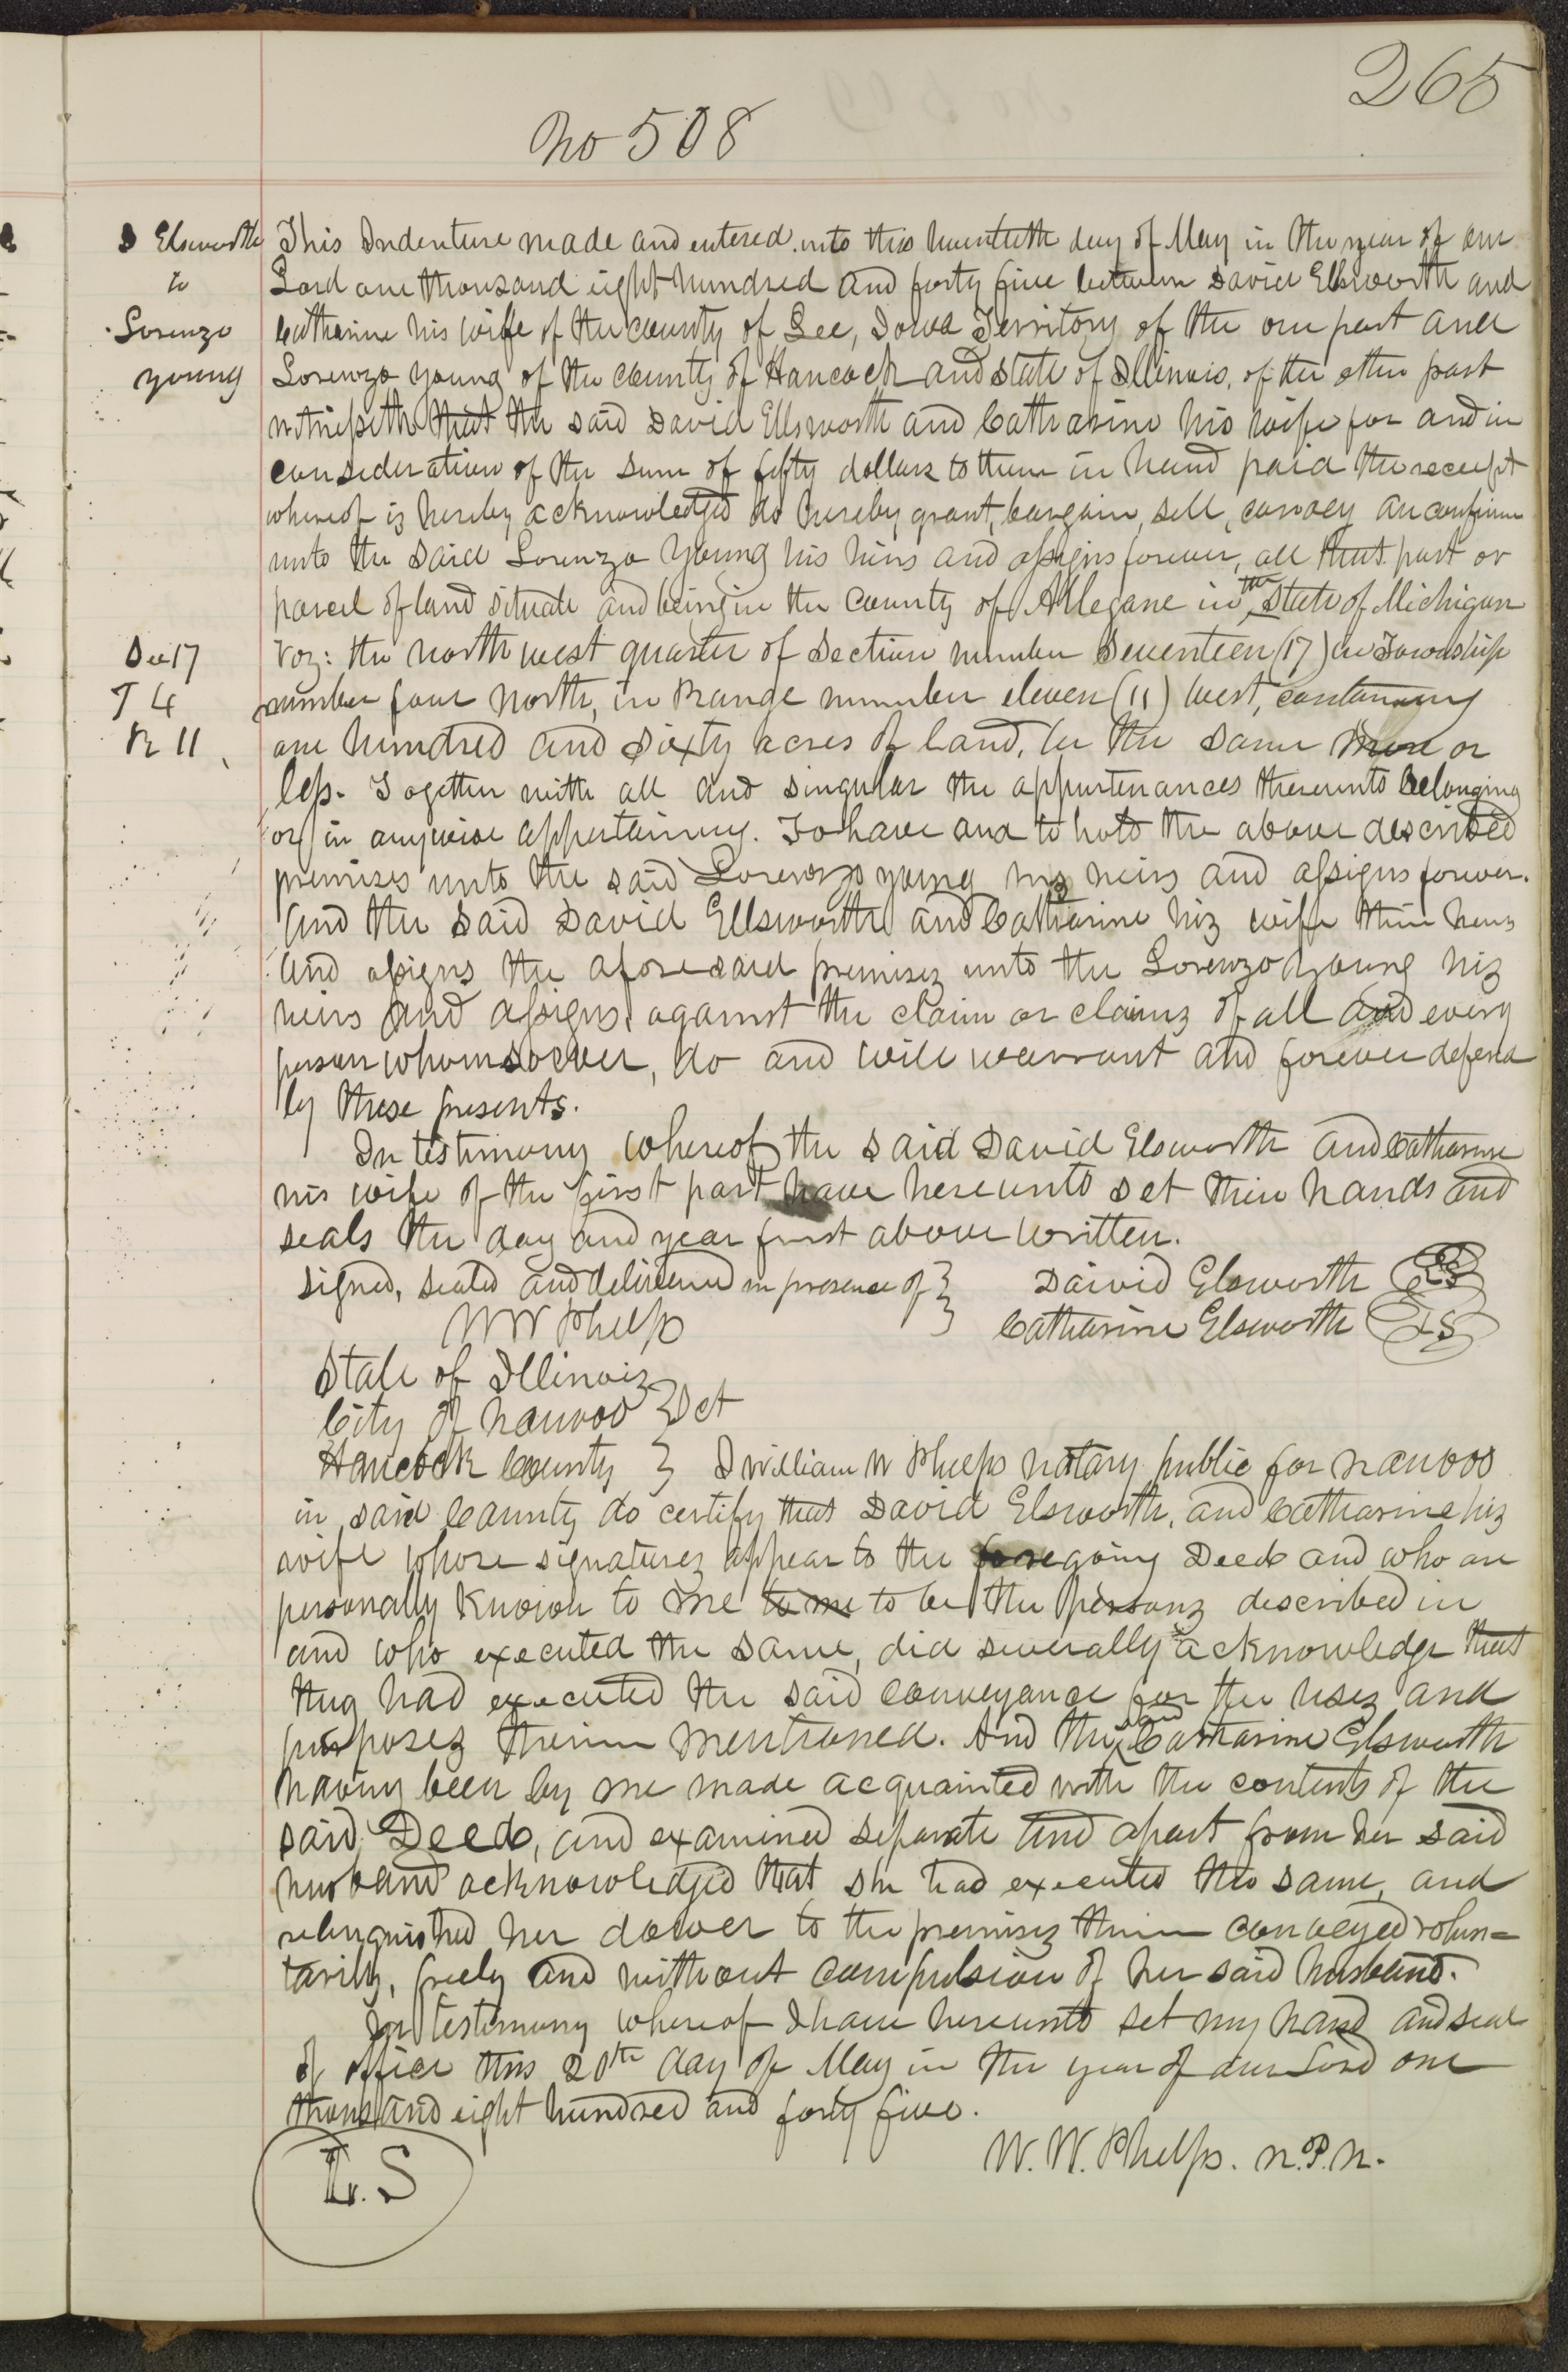 265
No 508
D Elsworth
to
Lorenzo
young
This Indenture made and entered into this twentieth day of May in the year of our
Lord one thousand eight hundred and forty five between David Ellsworth and
Catharine his wife of the county of Lee, Iowa Territory of the one part and
Lorenzo young of the county of Hancock and state of Illinois, of the other part
witnesseth that the said David Ellsworth and Catharine his wife for and in
consideration of the sum of fifty dollars to them in hand paid the receipt
whereof is hereby acknowledged do hereby grant, bargain, sell, convey an confirm
unto the said Lorenzo Young his heirs and assigns forever, all that part or
parcel of land situate and being in the County of Allegane in the State of Michigan
Sec 17
T 4
R 11
Viz: the north west quarter of Section number Seventeen (17) in Township
number four North, in Range number eleven (11) West, containing
one hundred and sixty acres of land, be the same more or
less. Together with all and singular the appurtenances thereunto belonging
or in anywise appertaining. To have and to hold the above described
premises unto the said Lorenzo young his heirs and assigns forever.
And the said David Ellsworth and Catharine his wife their heirs
and assigns the aforesaid premises unto the Lorenzo Young his
heirs and assigns, against the claim or claims of all and every
person whomsoever, do and will warrant and forever defend
by these presents.
In testimony whereof the said David Elsworth and Catharine
his wife of the first part have hereunto set their hands and
seals the day and year first above written.
signed, sealed and delivered in presence of } Daivid Elsworth LS
W W Phelps } Catharine Elsworth LS
State of Illinois
City of Nauvoo } Sct
Hancock County } I William W Phelps notary public for Nauvoo
in said County do certify that David Elsworth, and Catharine his
wife whose signatures appear to the foregoing Deed and who are
personally known to me to me to be the persons described in
and who executed the same, did severally acknowledge that
they had executed the said conveyance for the uses and
purposes therein mentioned. And the said Catharine Elsworth
having been by me made acquainted with the contents of the
said Deed, and examined separate and apart from her said
husband acknowledged that she had executed the same, and
relinquished her dower to the premises therein conveyed volun=
tarily, freely and without compulsion of her said husband.
In testimony whereof I have hereunto set my hand and seal
of office this 20th day of May in the year of our Lord one
thousand eight hundred and forty five.
W. W. Phelps. N.P.N.
L.S